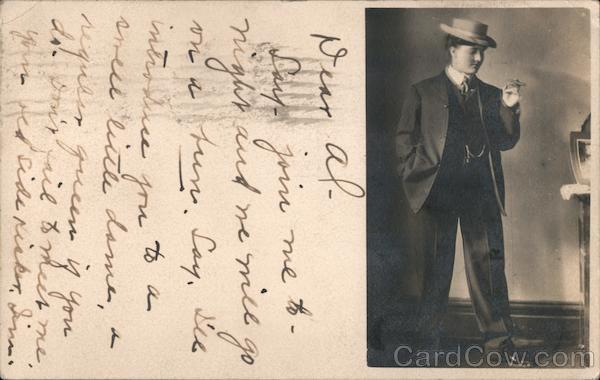 Dear Al-
Say- join me to-
night and we will go
on a tear. Say, I'll
introduce you to a
swell little dame, a
regular queen if you
do. Don't fail to meet me
your old side kicker, Jim.
CardCow.com